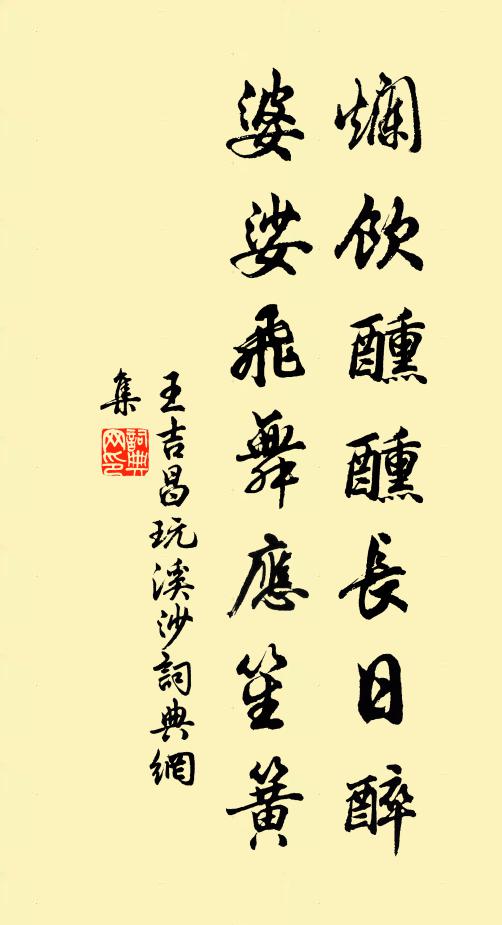 爛飲醺醺長日醉
婆娑飛舞應笙簧
王吉昌玩溪沙詞典網
集
詞典網印